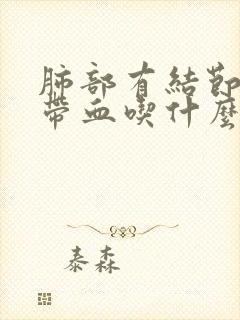 肺部有結節
帶血喫什麼
泰森